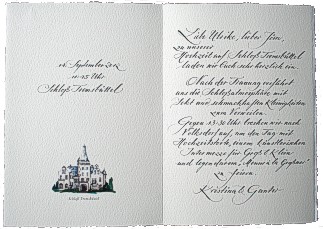 14. September 2012
11:45 Uhr
Schloß Tremsbüttel
Schloß Tremsbüttel
Liebe Ulrike, lieber
zu unserer
Hochzeit auf Schloß Tremsbüttel
laden wir Euch sehr herzlich ein.
Nach der Trauung verführt
uns die Schloßatmosphäre mit
Sekt und schmackhaften Kleinigkeiten
zum Verweilen.
Gegen 13:30 Uhr brechen wir nach
Volksdorf auf, um den Tag mit
Hochzeitstorte, einem künstlerischen
Intermezzo für Groß & Klein
und legendärem
zu feiern.
Kristina & Gunter